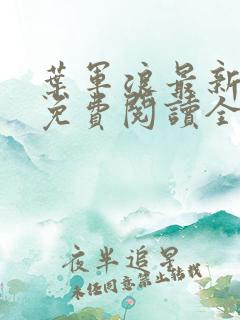 葉軍浪最新
免費閱讀全
夜半追星
未经同意禁止转载